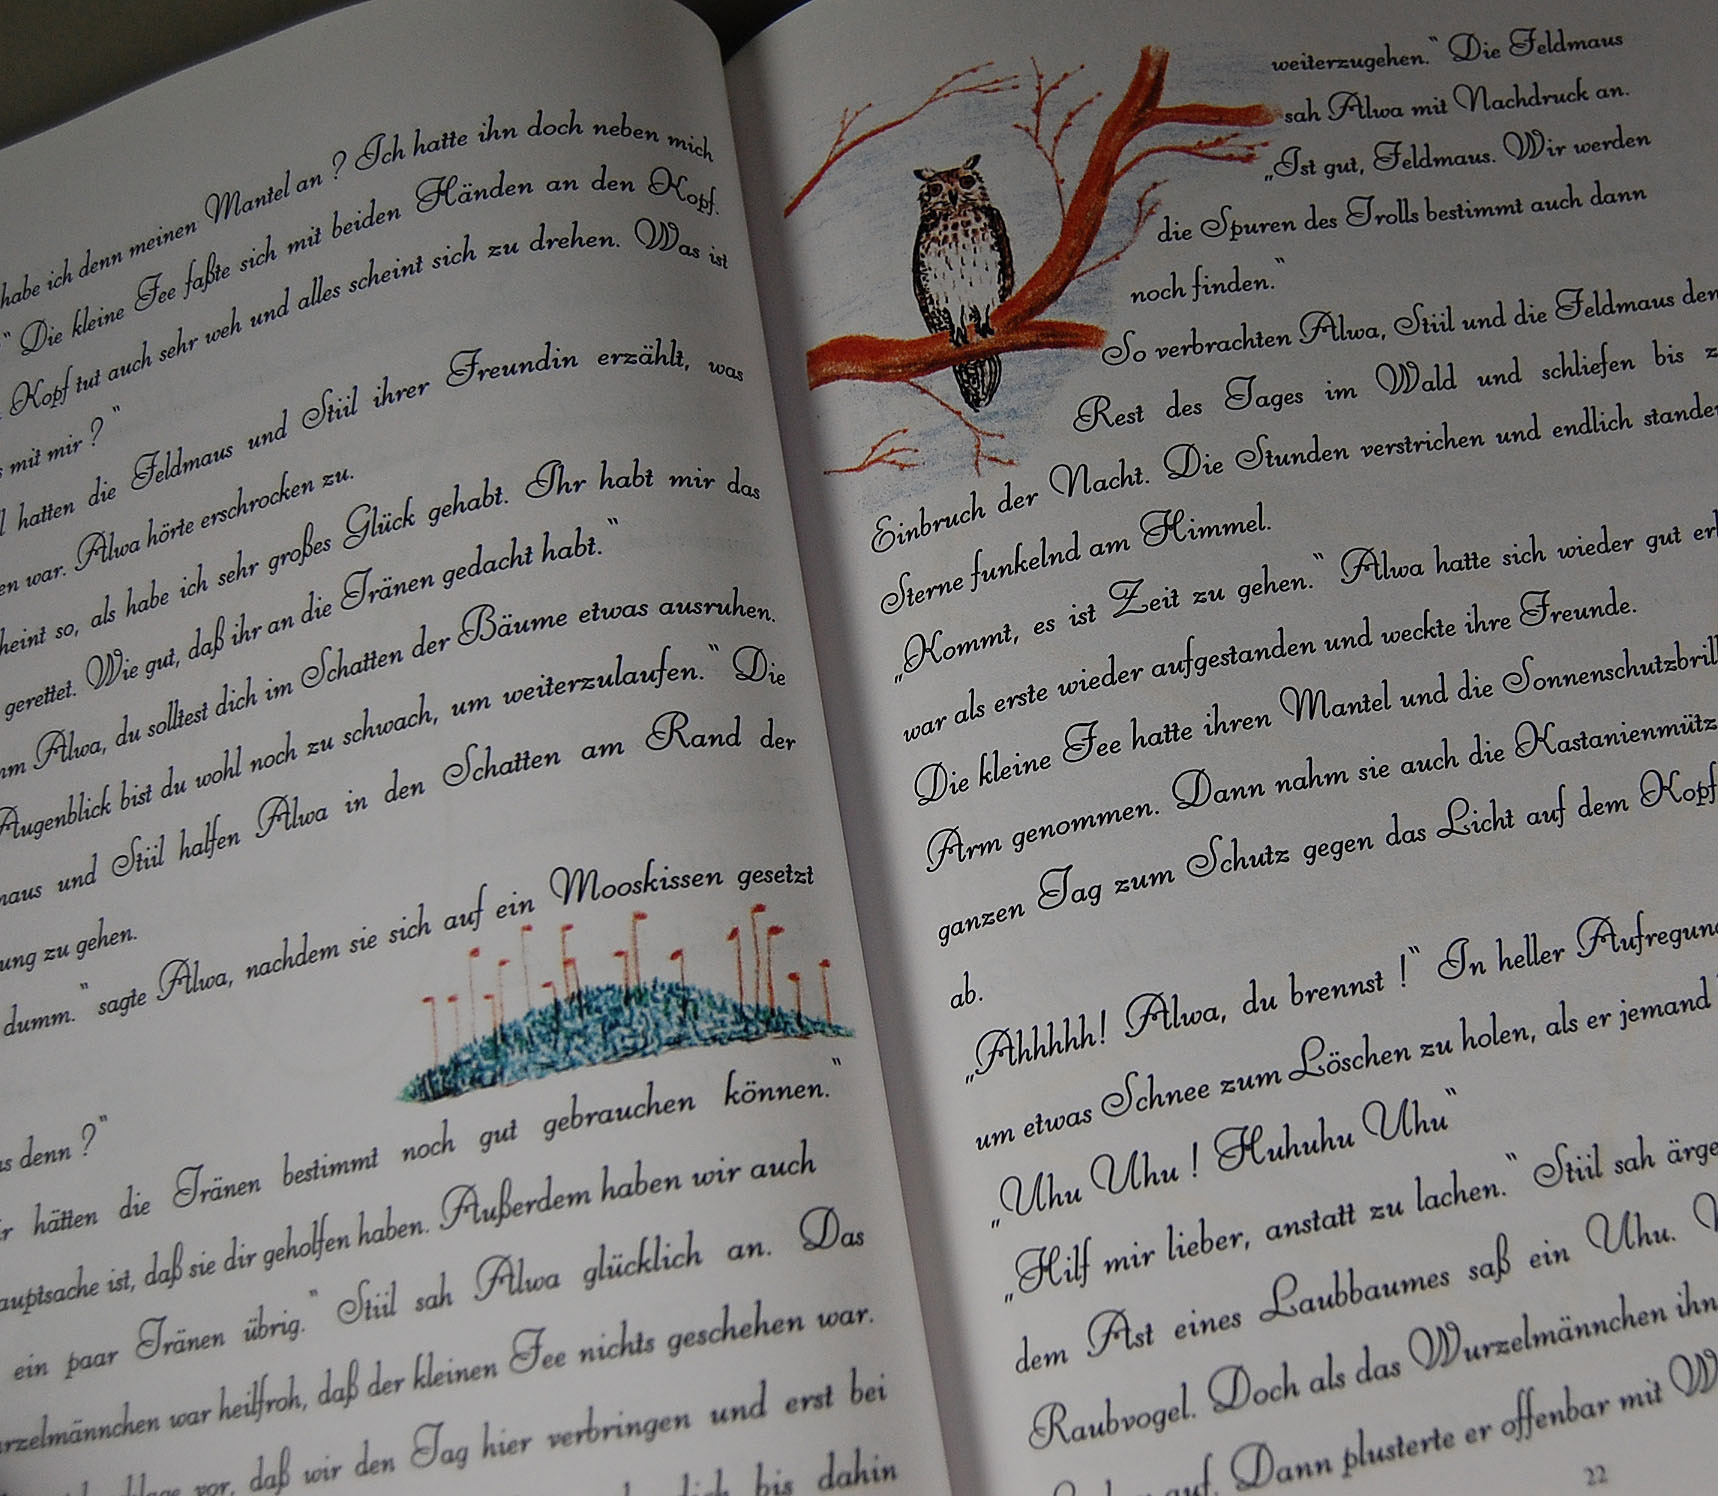 habe ich denn meinen Mantel an ? Ich hatte ihn doch neben mich
“ Die kleine Fee faßte sich mit beiden Händen an den Kopf.
Kopf tut auch sehr weh und alles scheint sich zu drehen. Was ist
mit mir ?“
hatten die Feldmaus und Stiil ihrer Freundin erzählt, was
war. Alwa hörte erschrocken zu.
so, als habe ich sehr großes Glück gehabt. Ihr habt mir das
gerettet. Wie gut, daß ihr an die Tränen gedacht habt.“
Alwa, du solltest dich im Schatten der Bäume etwas ausruhen.
Augenblick bist du wohl noch zu schwach, um weiterzulaufen.“ Die
und Stiil halfen Alwa in den Schatten am Rand der
zu gehen.
dumm.“ sagte Alwa, nachdem sie sich auf ein Mooskissen gesetzt
denn ?“
hätten die Tränen bestimmt noch gut gebrauchen können.“
ist, daß sie dir geholfen haben. Außerdem haben wir auch
ein paar Tränen übrig.“ Stiil sah Alwa glücklich an. Das
war heilfroh, daß der kleinen Fee nichts geschehen war.
vor, daß wir den Tag hier verbringen und erst bei
bis dahin
weiterzugehen.“ Die Feldmaus
sah Alwa mit Nachdruck an.
„Ist gut, Feldmaus. Wir werden
die Spuren des Trolls bestimmt auch dann
noch finden.“
So verbrachten Alwa, Stiil und die Feldmaus den
Rest des Tages im Wald und schliefen bis
Einbruch der Nacht. Die Stunden verstrichen und endlich standen
Sterne funkelnd am Himmel.
„Kommt, es ist Zeit zu gehen.“ Alwa hatte sich wieder gut
war als erste wieder aufgestanden und weckte ihre Freunde.
Die kleine Fee hatte ihren Mantel und die
Arm genommen. Dann nahm sie auch die
ganzen Tag zum Schutz gegen das Licht auf dem Kopf
ab.
„Ahhhhh! Alwa, du brennst !“ In heller Aufregung
um etwas Schnee zum Löschen zu holen, als er jemand
„Uhu Uhu ! Huhuhu Uhu“
„Hilf mir lieber, anstatt zu lachen.“ Stiil sah
dem Ast eines Laubbaumes saß ein Uhu.
Raubvogel. Doch als das Wurzelmännchen ihn
auf. Dann plusterte er offenbar mit
22